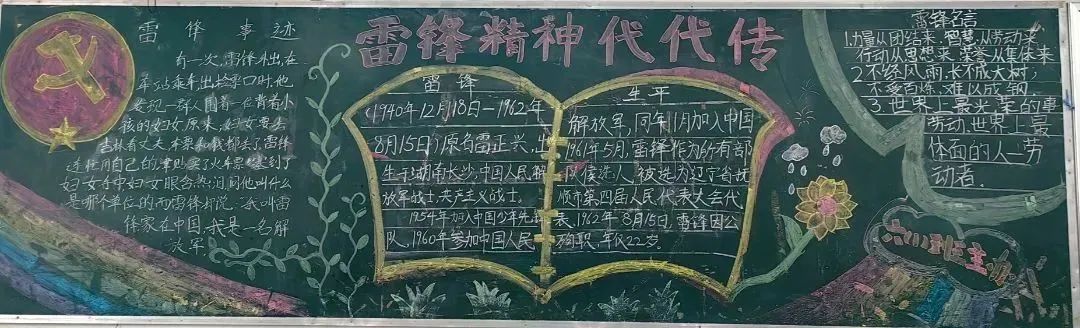 雷锋精神代代传
雷锋事迹
有一次,雷锋外出,在
车站乘车出检票口时,他
发现一群人围着一位背着小
孩的妇女原来,妇女要去
吉林看丈夫,车票和钱都丢了雷锋
连忙用自己的津贴买了火车票塞到了
妇女手中妇女眼含热泪,问他叫什么
是哪个单位的而雷锋却说:"我叫雷
锋家在中国,我是一名解
放军
雷锋
(1940年12月18日—1962年
8月15日)原名雷正兴,出
生于湖南长沙,中国人民解
放军战士,共产主义战士。
1954年加入中国少年先锋
队,1960年参加中国人民
生平
解放军,同年11月加入中国
1961年5月,雷锋作为所有部
队候选人,被选为辽宁省抚
顺市第四届人民代表大会代
表,1962年8月15日,雷锋因公
殉职,年仅22岁。
雷锋名言
1.力量从团结来,智慧从劳动来
行动从思想来,荣誉从集体来
2不经风雨,长不成大树;
不受百炼,难以成钢
3.世界上最光荣的事
劳动,世界上最
体面的人—劳
动者.
班主办